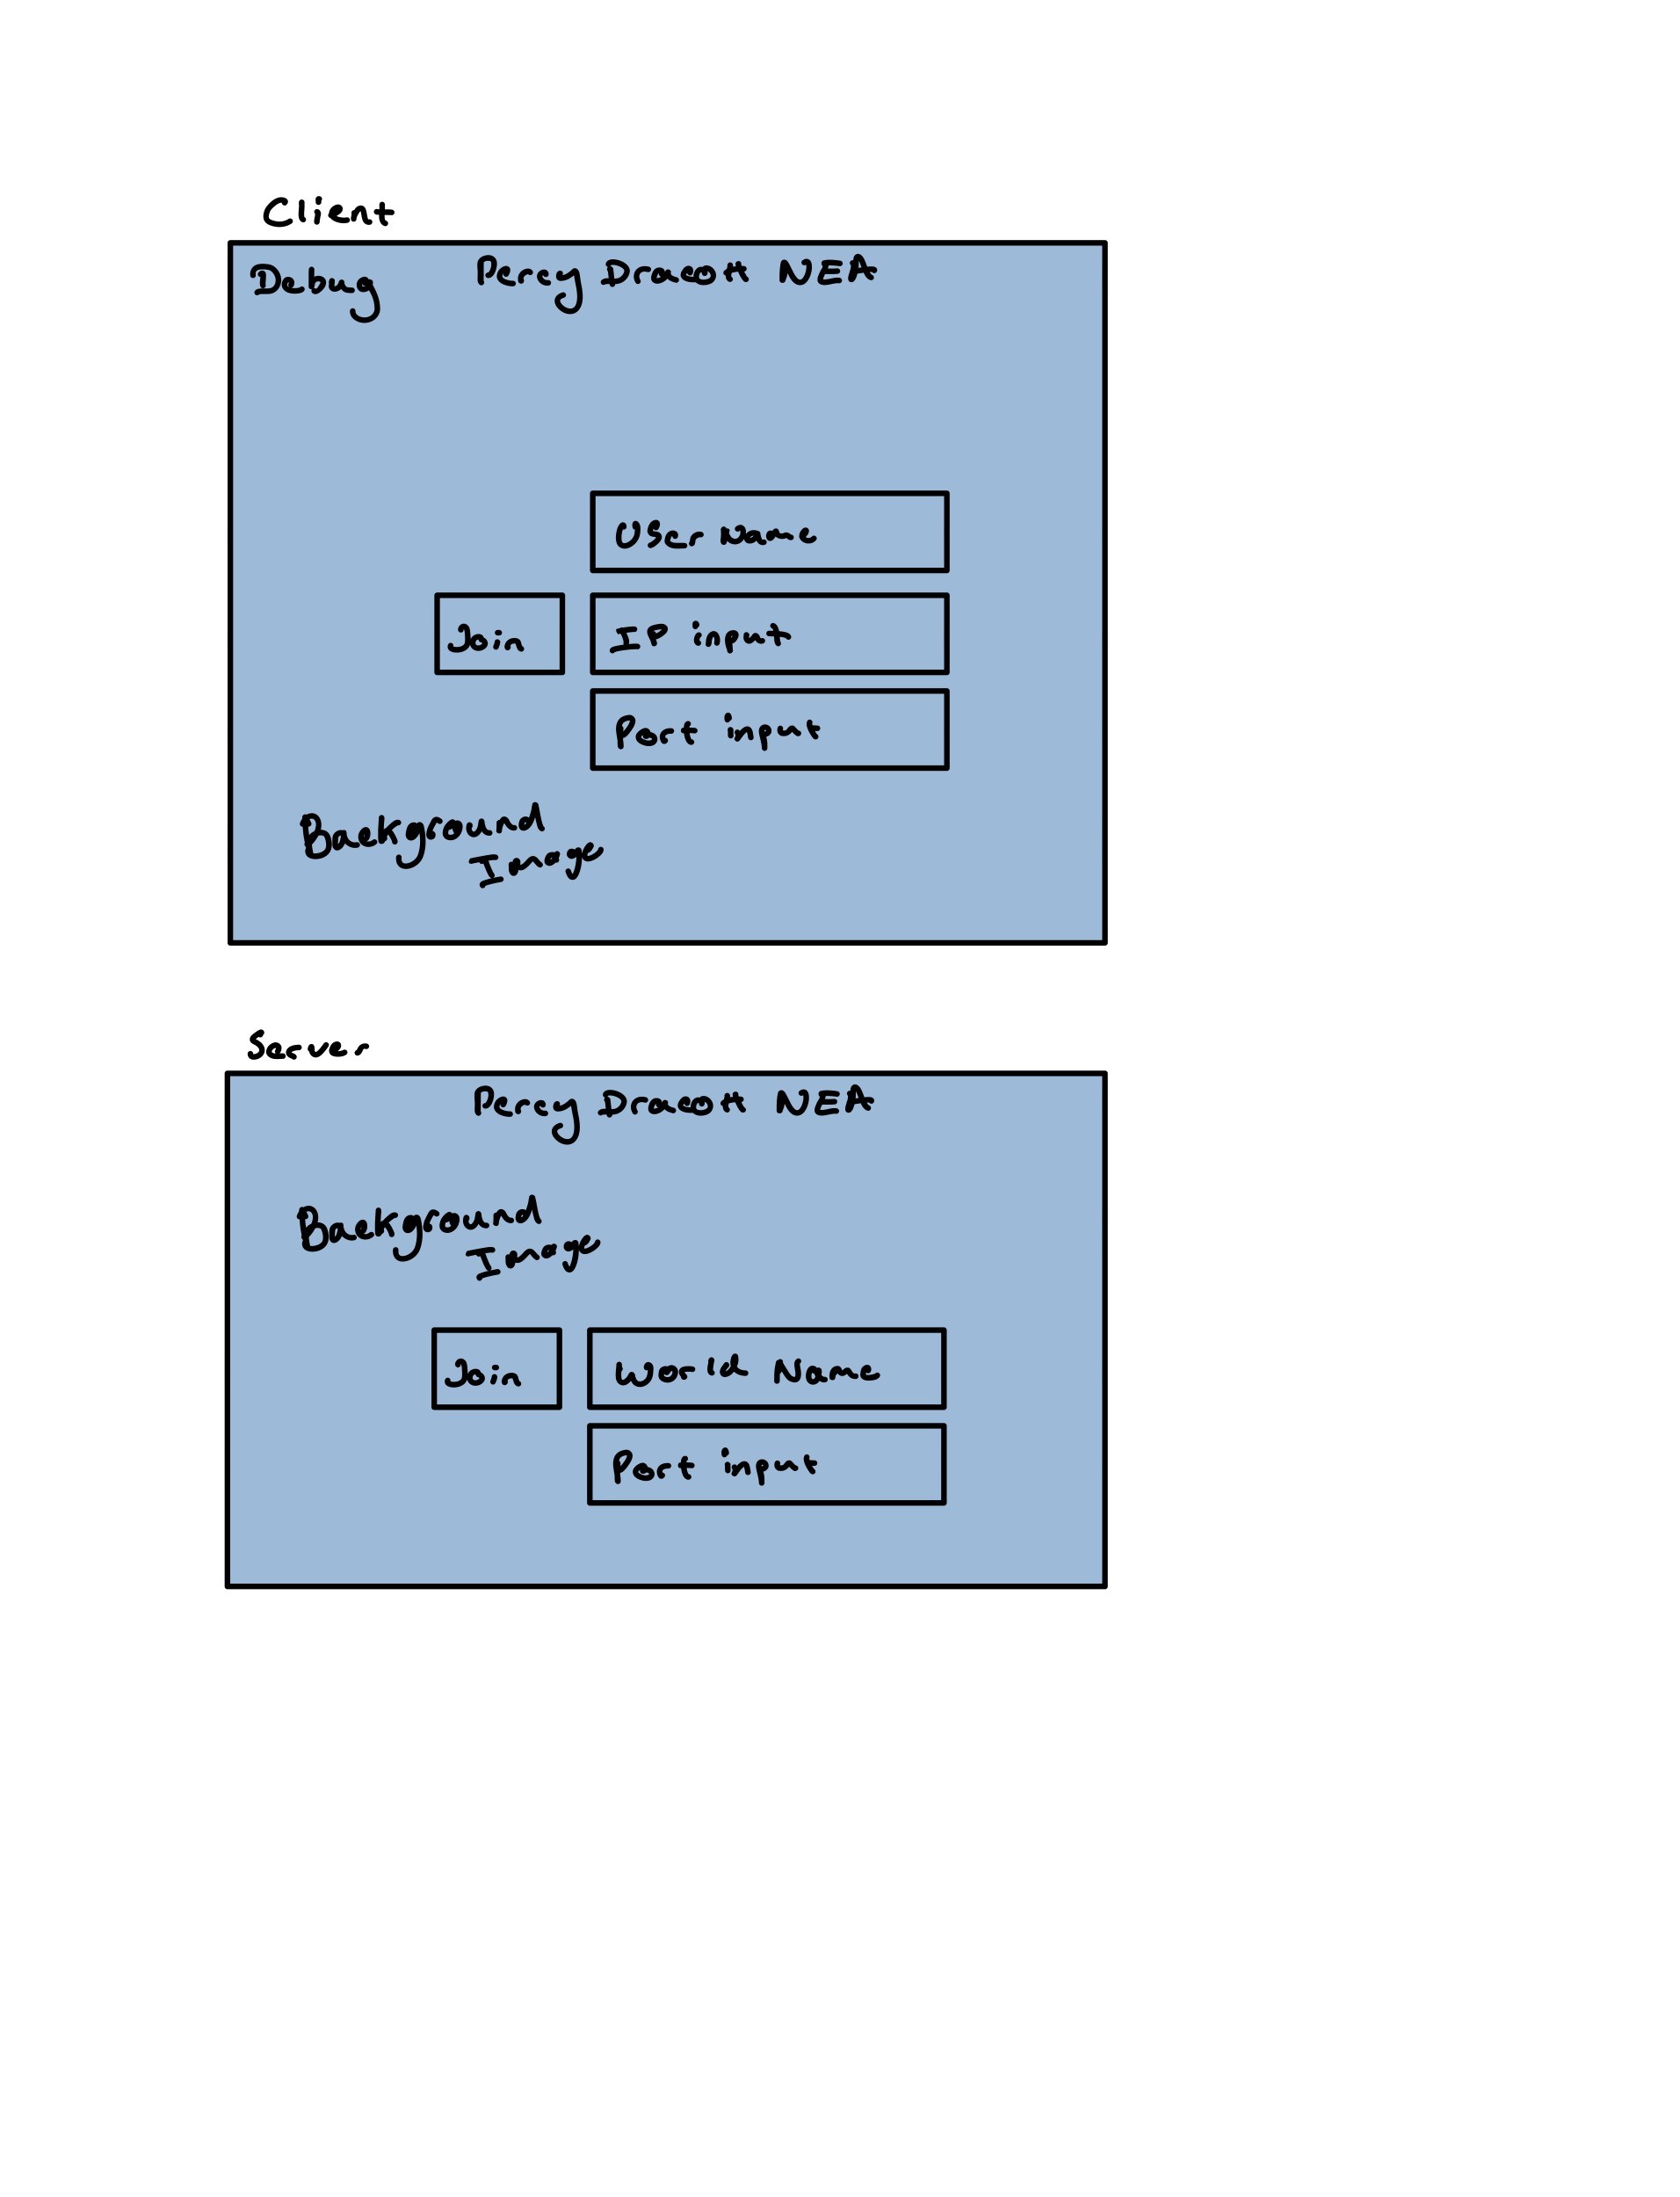 Client
Debug Percy Dracott NEA
User Name
Join IP input
Port input
Background
Image
Server
Percy Dracott NEA
Background
Image
Join World Name
Port input